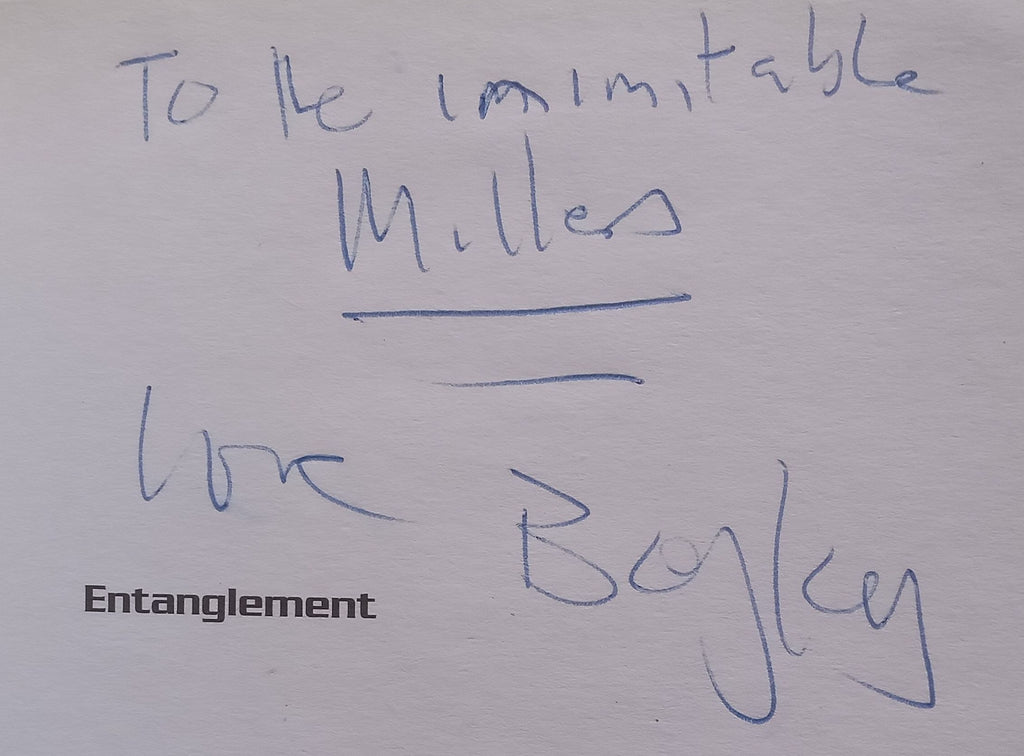 To the inimitable
Milles
love
Entanglement